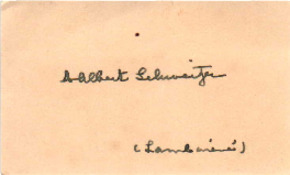 Albert Schweitzer
(Lambaréné)